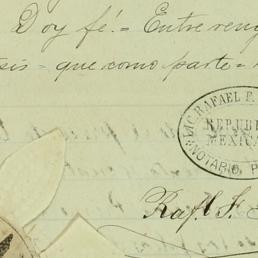 Doy fé.= Entre reng
sis = que como parte =
LIC. RAFAEL F.
REPUBL
MEXICA
NOTARIO, P
Raf.l F.